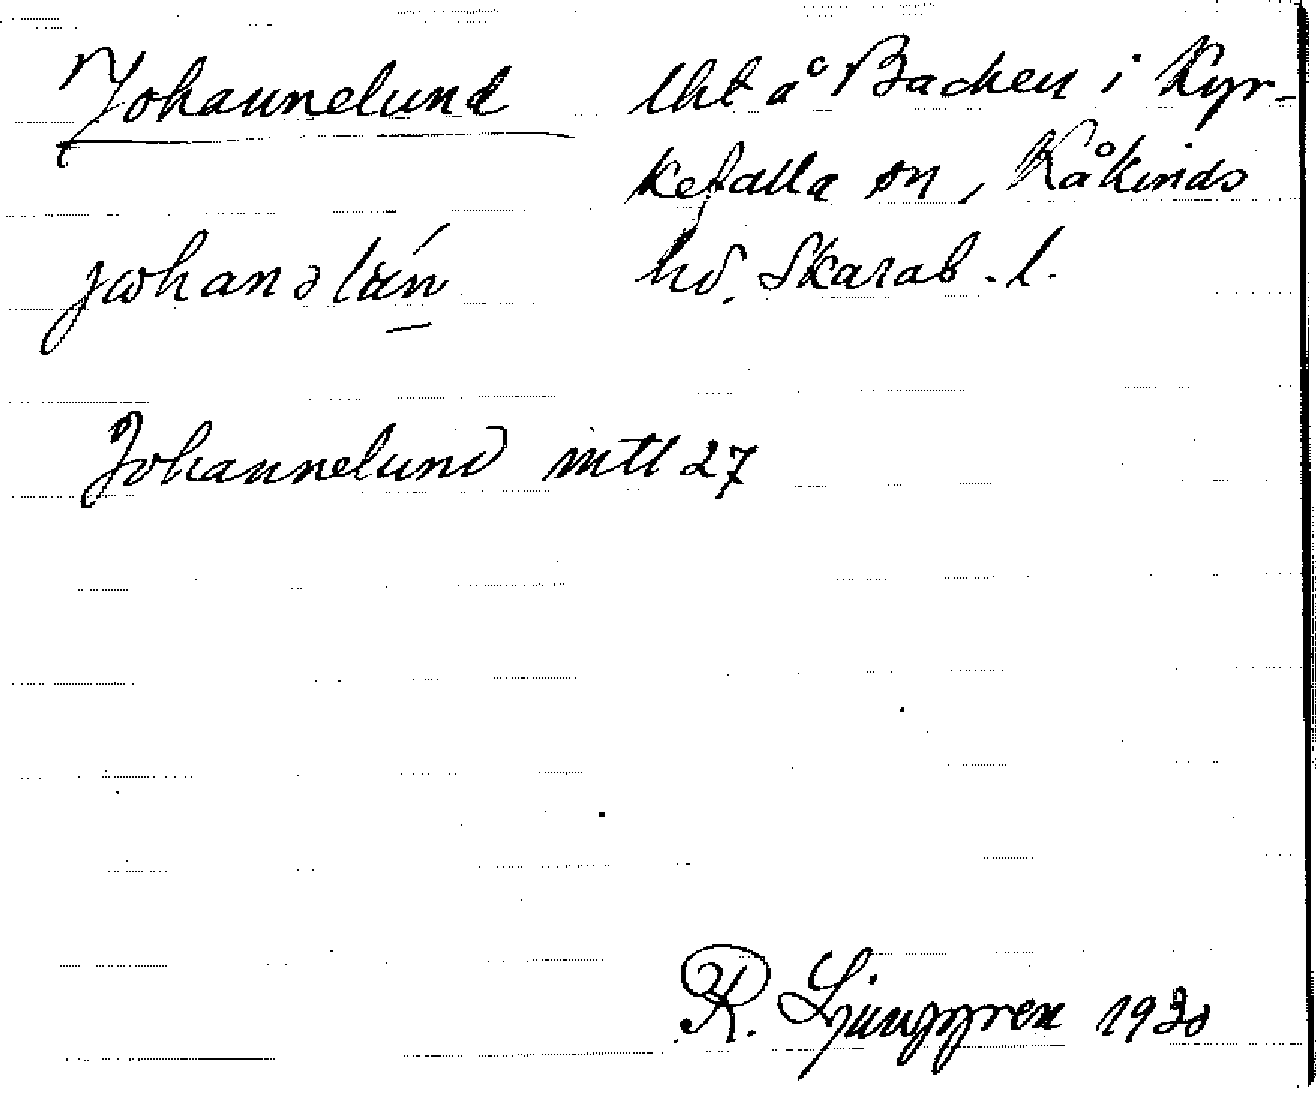 Johannelund
lht å Backen i Kyr-
kefalla sn, Kåkinds
hd. Skarab. l.
Johannelund mtl 27
R. Ljunggren 1930